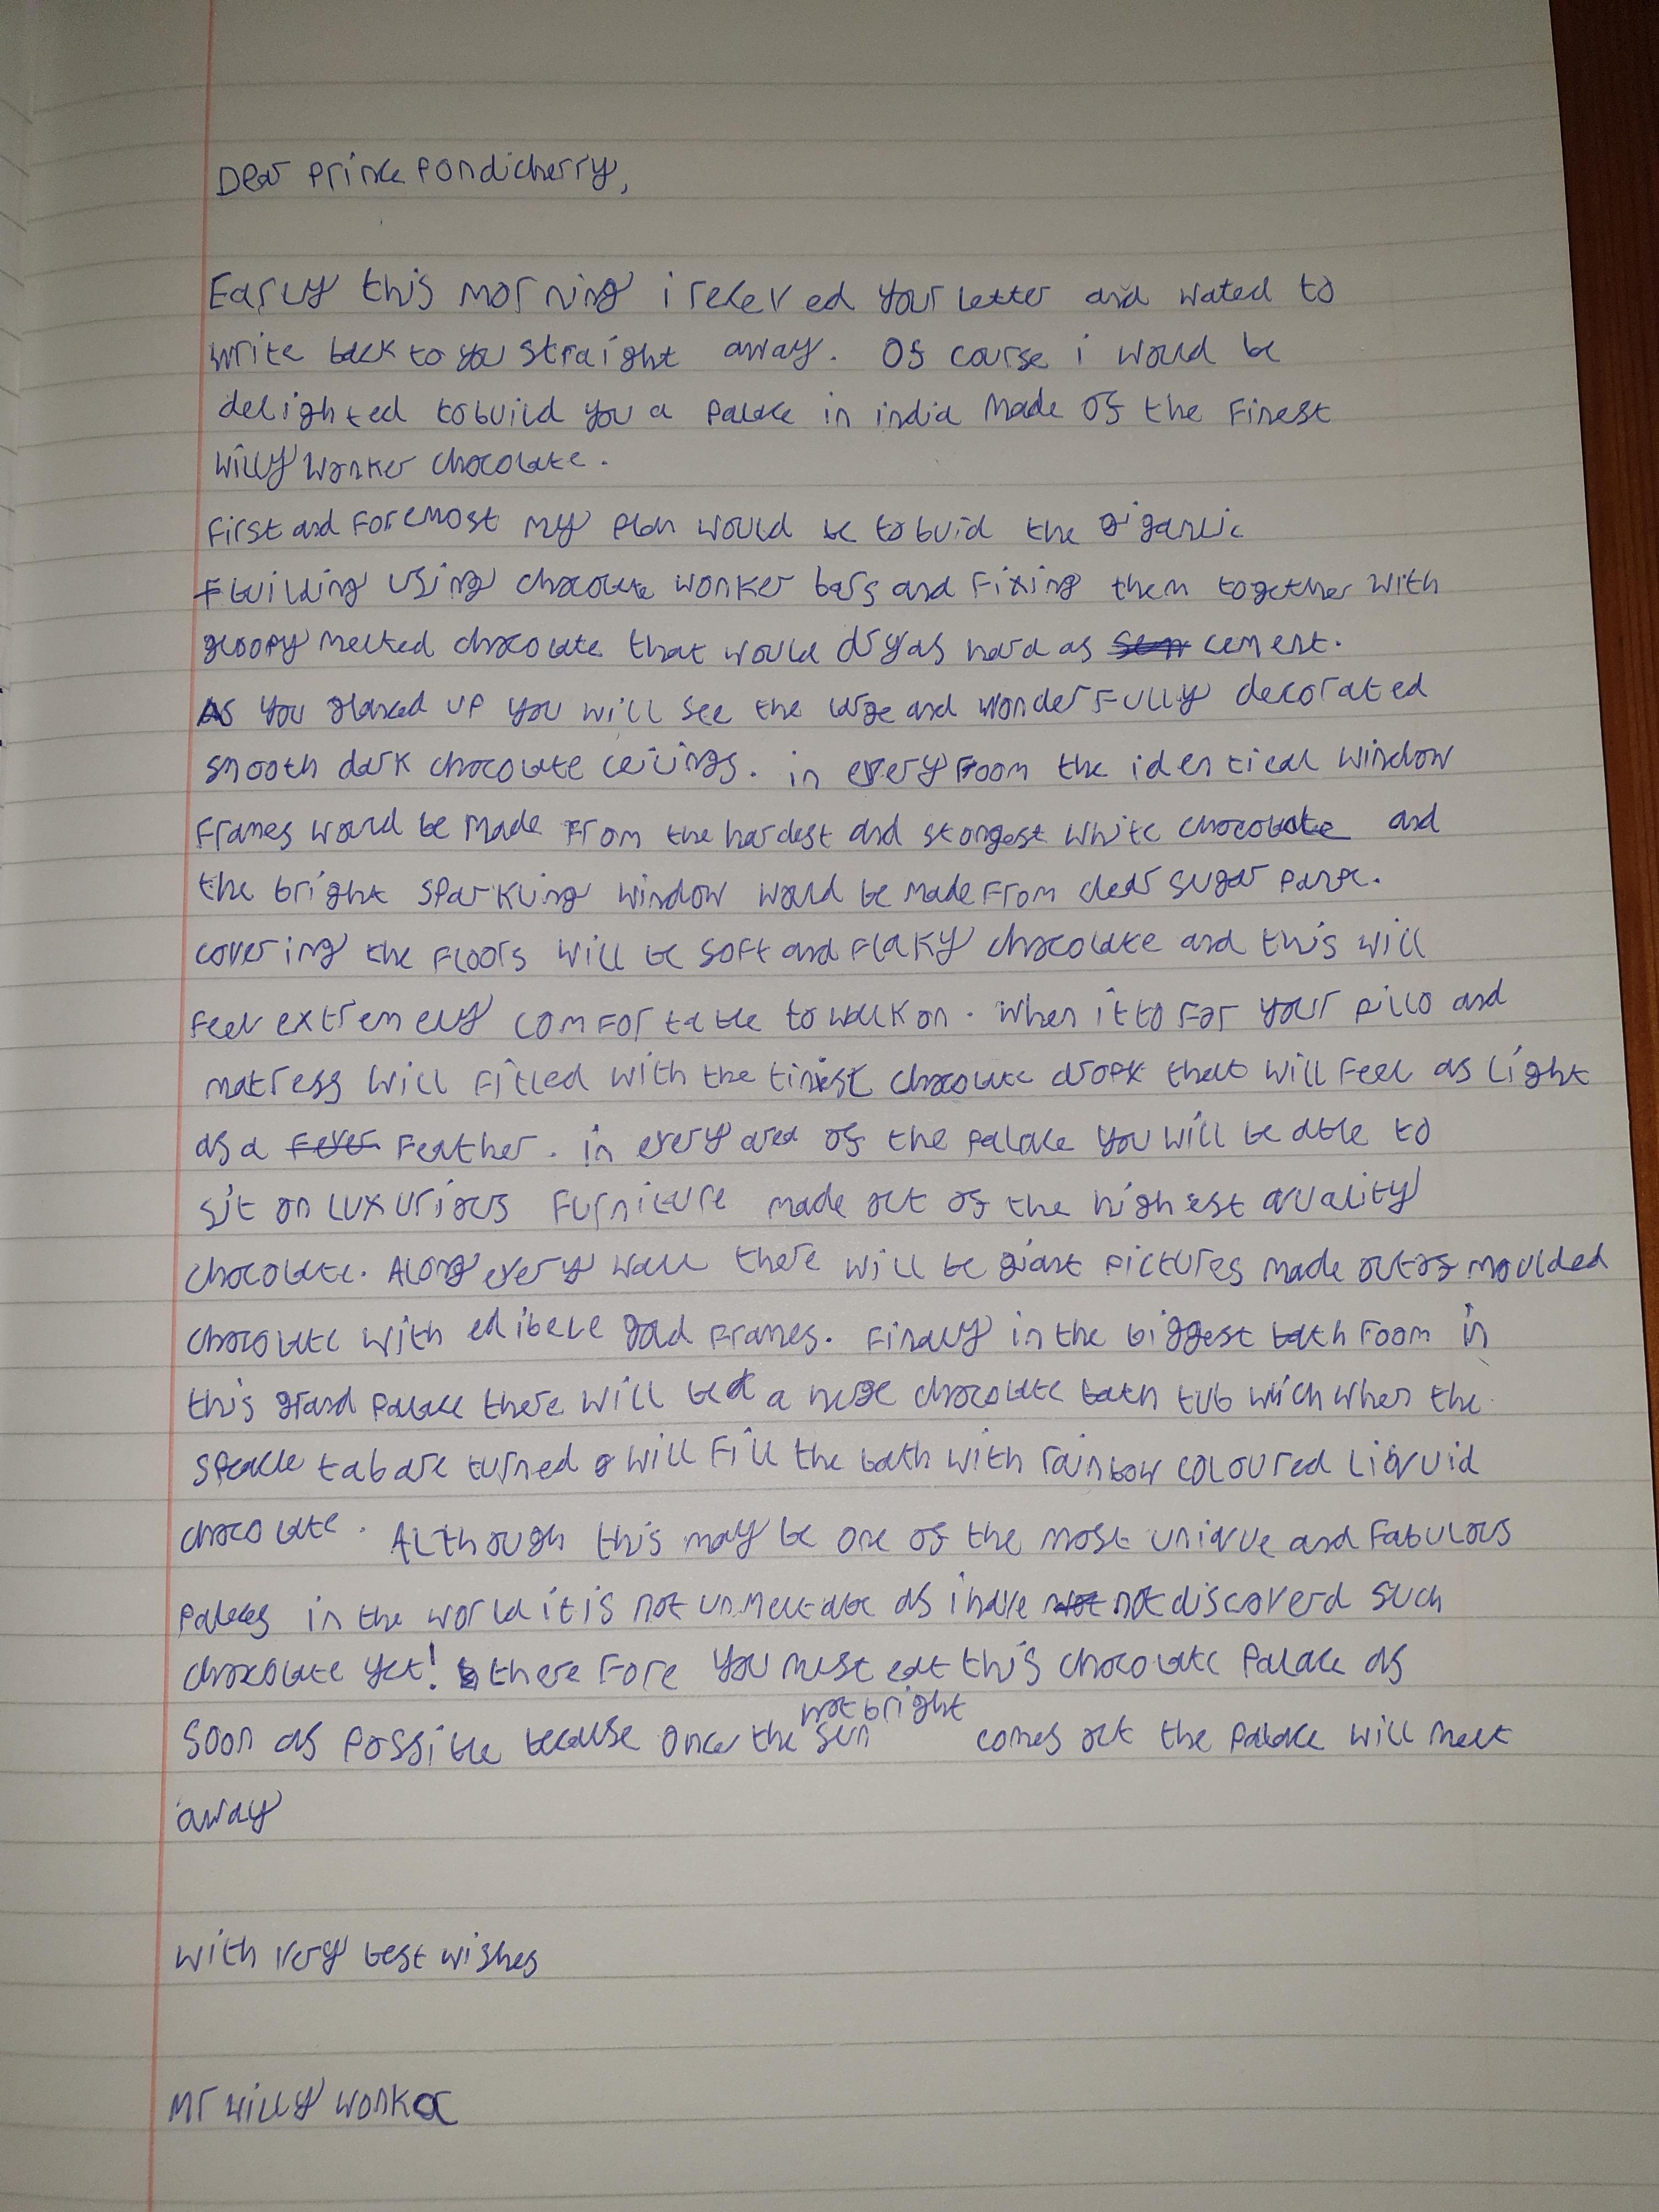 Dear Prince Pondicherry,
Early this morning i receved your letter and wated to
write back to you straight away. Of course i would be
delighted to build you a palace in india made of the finest
willy wonker chocolate.
First and foremost my plan would be to buid the gigantic
building using chocolate wonker bars and fixing them together with
gloopy melted chocolate that would dry as hard as cement.
As you glanced up you will see the large and wonderfully decorated
smooth dark chocolate ceilings. in every room the identical window
frames would be made from the hardest and stongest white chocolate and
the bright sparkling window would be made from clear sugar pane.
covering the floors will be soft and flaky chocolate and this will
feel extremely comfortable to walk on. When it to for your pillo and
matress will filled with the tiniest chocolate drops that will feel as light
as a fever feather. in every area of the palace you will be able to
sit on luxurious furniture made out of the highest quality
chocolate. Along every wall there will be giant pictures made out of moulded
chocolate with edibele gold frames. Finally in the biggest bathroom in
this grand palace there will be a huge chocolate bath tub wich when the
tab are turned will fill the bath with rainbow coloured liquid
chocolate. Although this may be one of the most unique and fabulous
palaces in the world it is not unmeltable as i have not not discoverd such
chocolate yet! therefore you must eat this chocolate palace as
hot bright
soon as possible because once the sun comes out the palace will melt
away
with very best wishes
Mr willy wonka